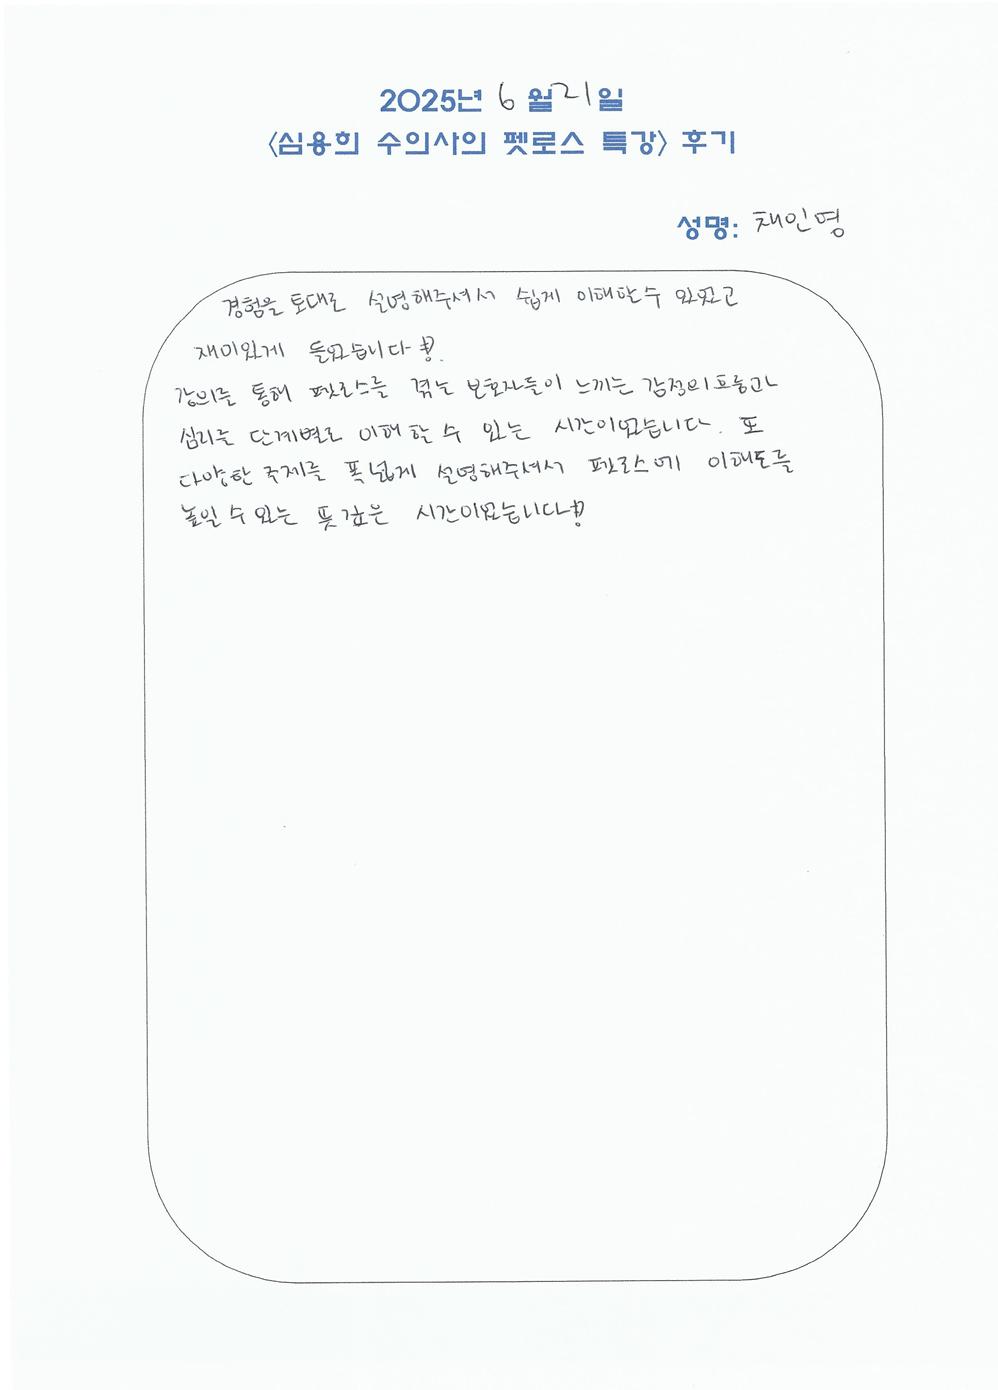 2025년 6월 21일
<심용희 수의사의 펫로스 특강> 후기
성명: 채인영
경험을 토대로 설명해주셔서 쉽게 이해할 수 있었고
재미있게 들었습니다!
강의를 통해 펫로스를 겪는 보호자들이 느끼는 감정의 흐름과
심리를 단계별로 이해 할 수 있는 시간이었습니다. 또
다양한 주제를 폭 넓게 설명해주셔서 펫로스에 이해도를
높일 수 있는 뜻 깊은 시간이었습니다!